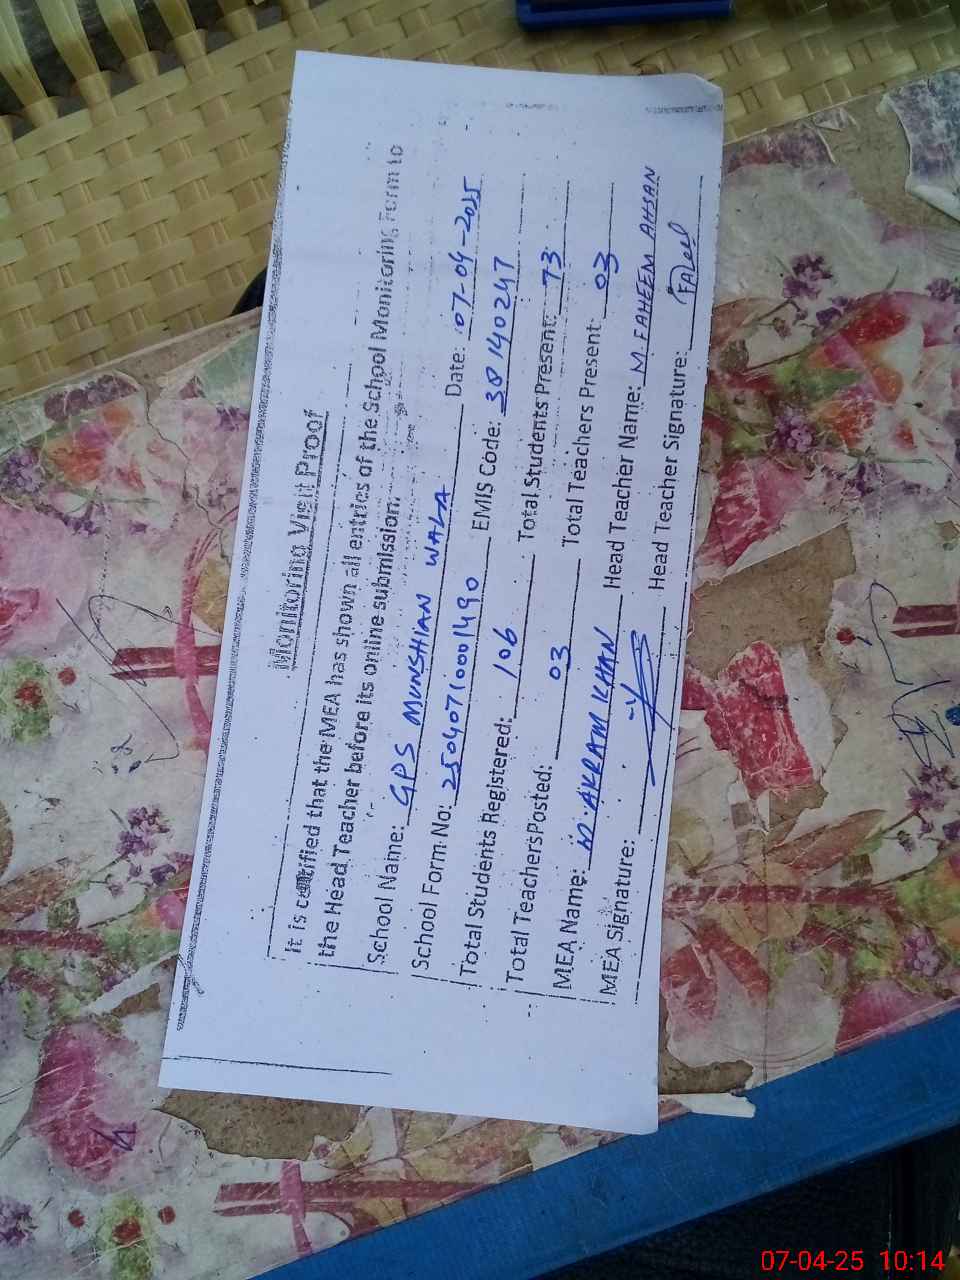 Monitoring Visit Proof
It is certified that the MEA has shown all entries of the School Monitoring Form to
the Head Teacher before its online submission.
School Name: GPS MUNSHIAN WALA Date: 07-04-2025
School Form No: 250407100001490 EMIS Code: 38140247
Total Students Registered: 106 Total Students Present: 73
Total Teachers Posted: 03 Total Teachers Present: 03
MEA Name: M. AKRAM KHAN Head Teacher Name: M. FAHEEM AHSAN
MEA Signature: Head Teacher Signature:
07-04-25 10:14